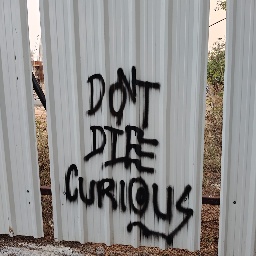 DON'T
DIE
CURIOUS